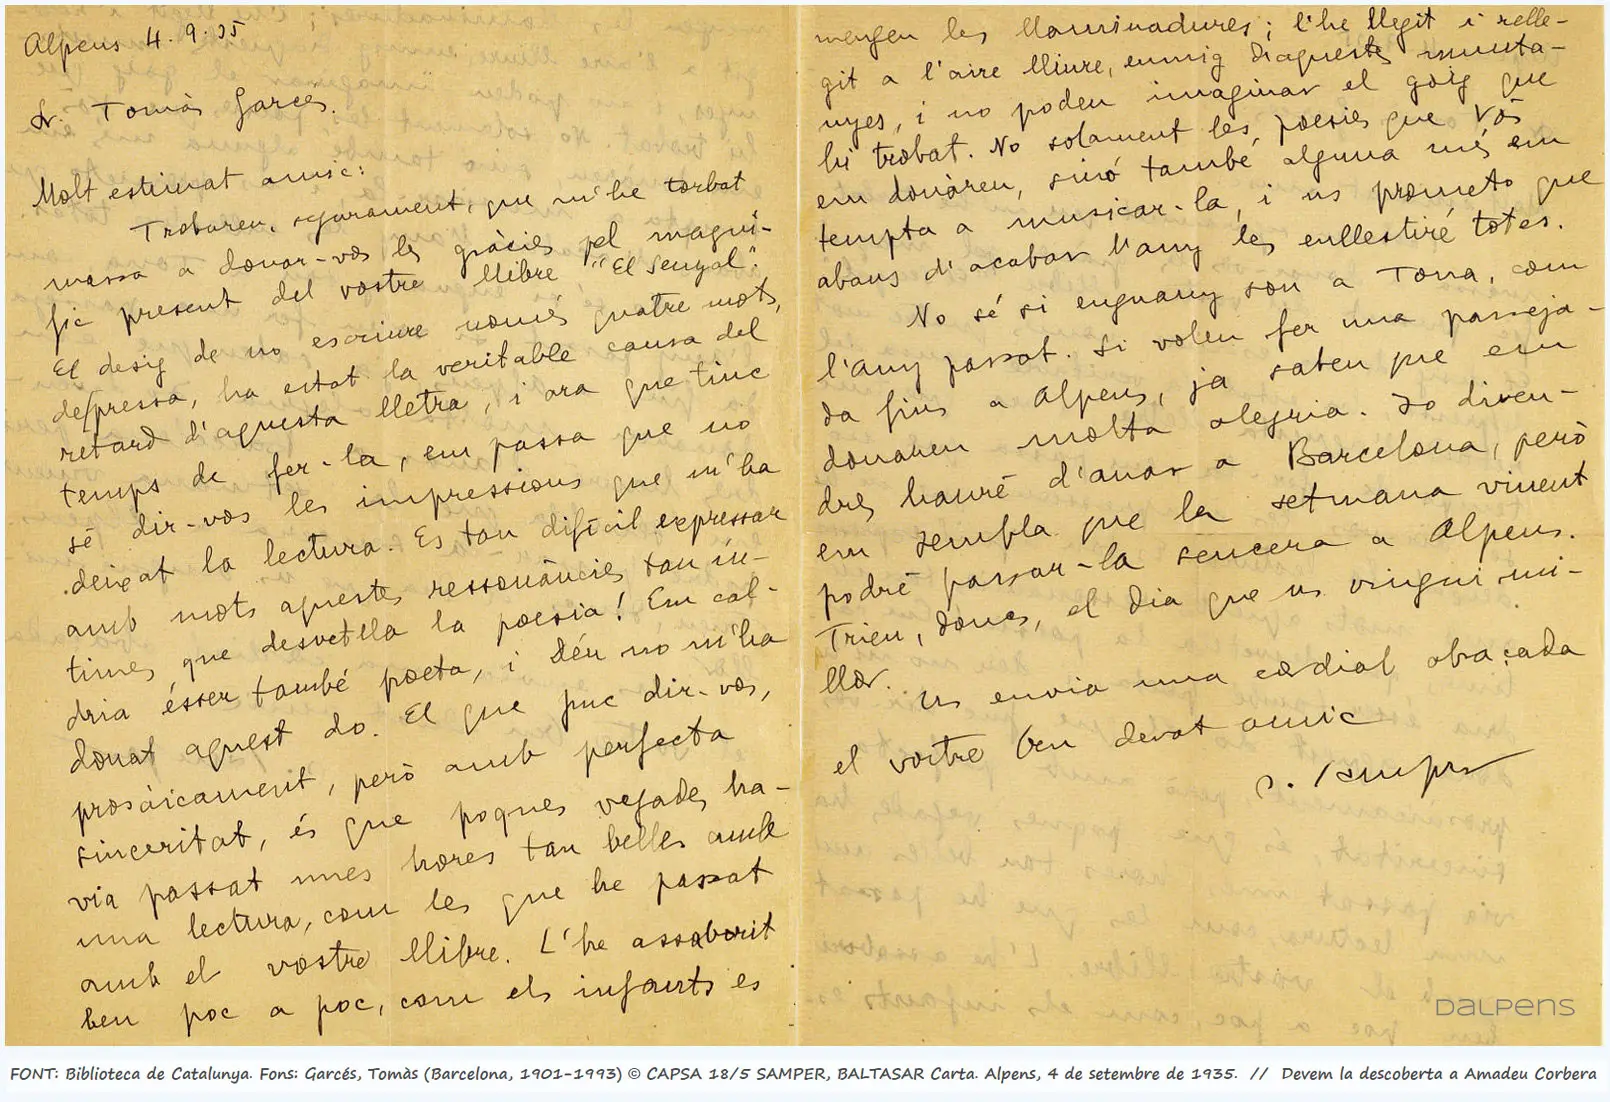 Alpens 4. 9. 35
Sr. Tomàs Garcés.
Molt estimat amic:
Trobareu, segurament, que m'he torbat
massa a donar-vos les gràcies pel magní-
fic present del vostre llibre "El Senyal".
El desig de no escriure només quatre mots,
de/pressa, ha estat la veritable causa del
retard d'aquesta lletra, i ara que tinc
temps de fer-la, em passa que no
sé dir-vos les impressions que m'ha
deixat la lectura. Es tan difícil expressar
amb mots aquestes ressonàncies tan ín-
times que desvetlla la poesia! Em cal-
dria ésser també poeta, i Déu no m'ha
donat aquest do. El que puc dir-vos,
prosàicament, però amb perfecta
sinceritat, és que poques vegades ha-
via passat unes hores tan belles amb
una lectura, com les que he passat
amb el vostre llibre. L'he assaborit
ben poc a poc, com els infants es
mengen les llaminadures; l'he llegit i relle-
git a l'aire lliure, enmig d'aquestes munta-
nyes, i no podeu imaginar el goig que
hi trobat. No solament les poesies que Vós
em donàreu, sinó també alguna més em
tempta a musicar-la, i us prometo que
abans d'acabar l'any les enllestiré totes.
No sé si enguany sou a Tona, com
l'any passat. Si voleu fer una passeja-
da fins a Alpens, ja sabeu que em
donareu molta alegria. Jo diven-
dres hauré d'anar a Barcelona, però
em sembla que la setmana vinent
podré passar-la sencera a Alpens.
Trieu, doncs, el dia que us vingui mi-
llor.
Us envia una cordial abraçada
el vostre ben devot amic
B. Samper
DALPENS
FONT: Biblioteca de Catalunya. Fons: Garcés, Tomàs (Barcelona, 1901-1993) © CAPSA 18/5 SAMPER, BALTASAR Carta. Alpens, 4 de setembre de 1935. // Devem la descoberta a Amadeu Corbera